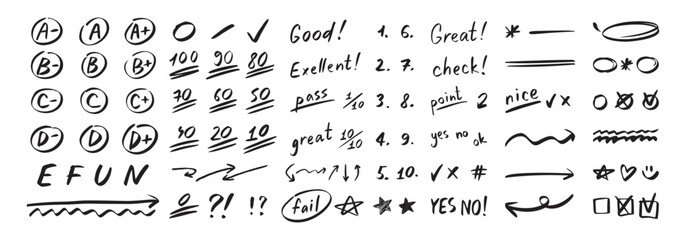 A- A A+ Good! 1. 6. Great!
B- B B+ 100 90 80 Exellent! 2. 7. check!
C- C C+ 70 60 50 pass 1/10 3. 8. point 2 nice
D- D D+ 40 20 10 great 10/10 4. 9. yes no ok
E F U N 5. 10. #
0 ?! !? fail YES NO!